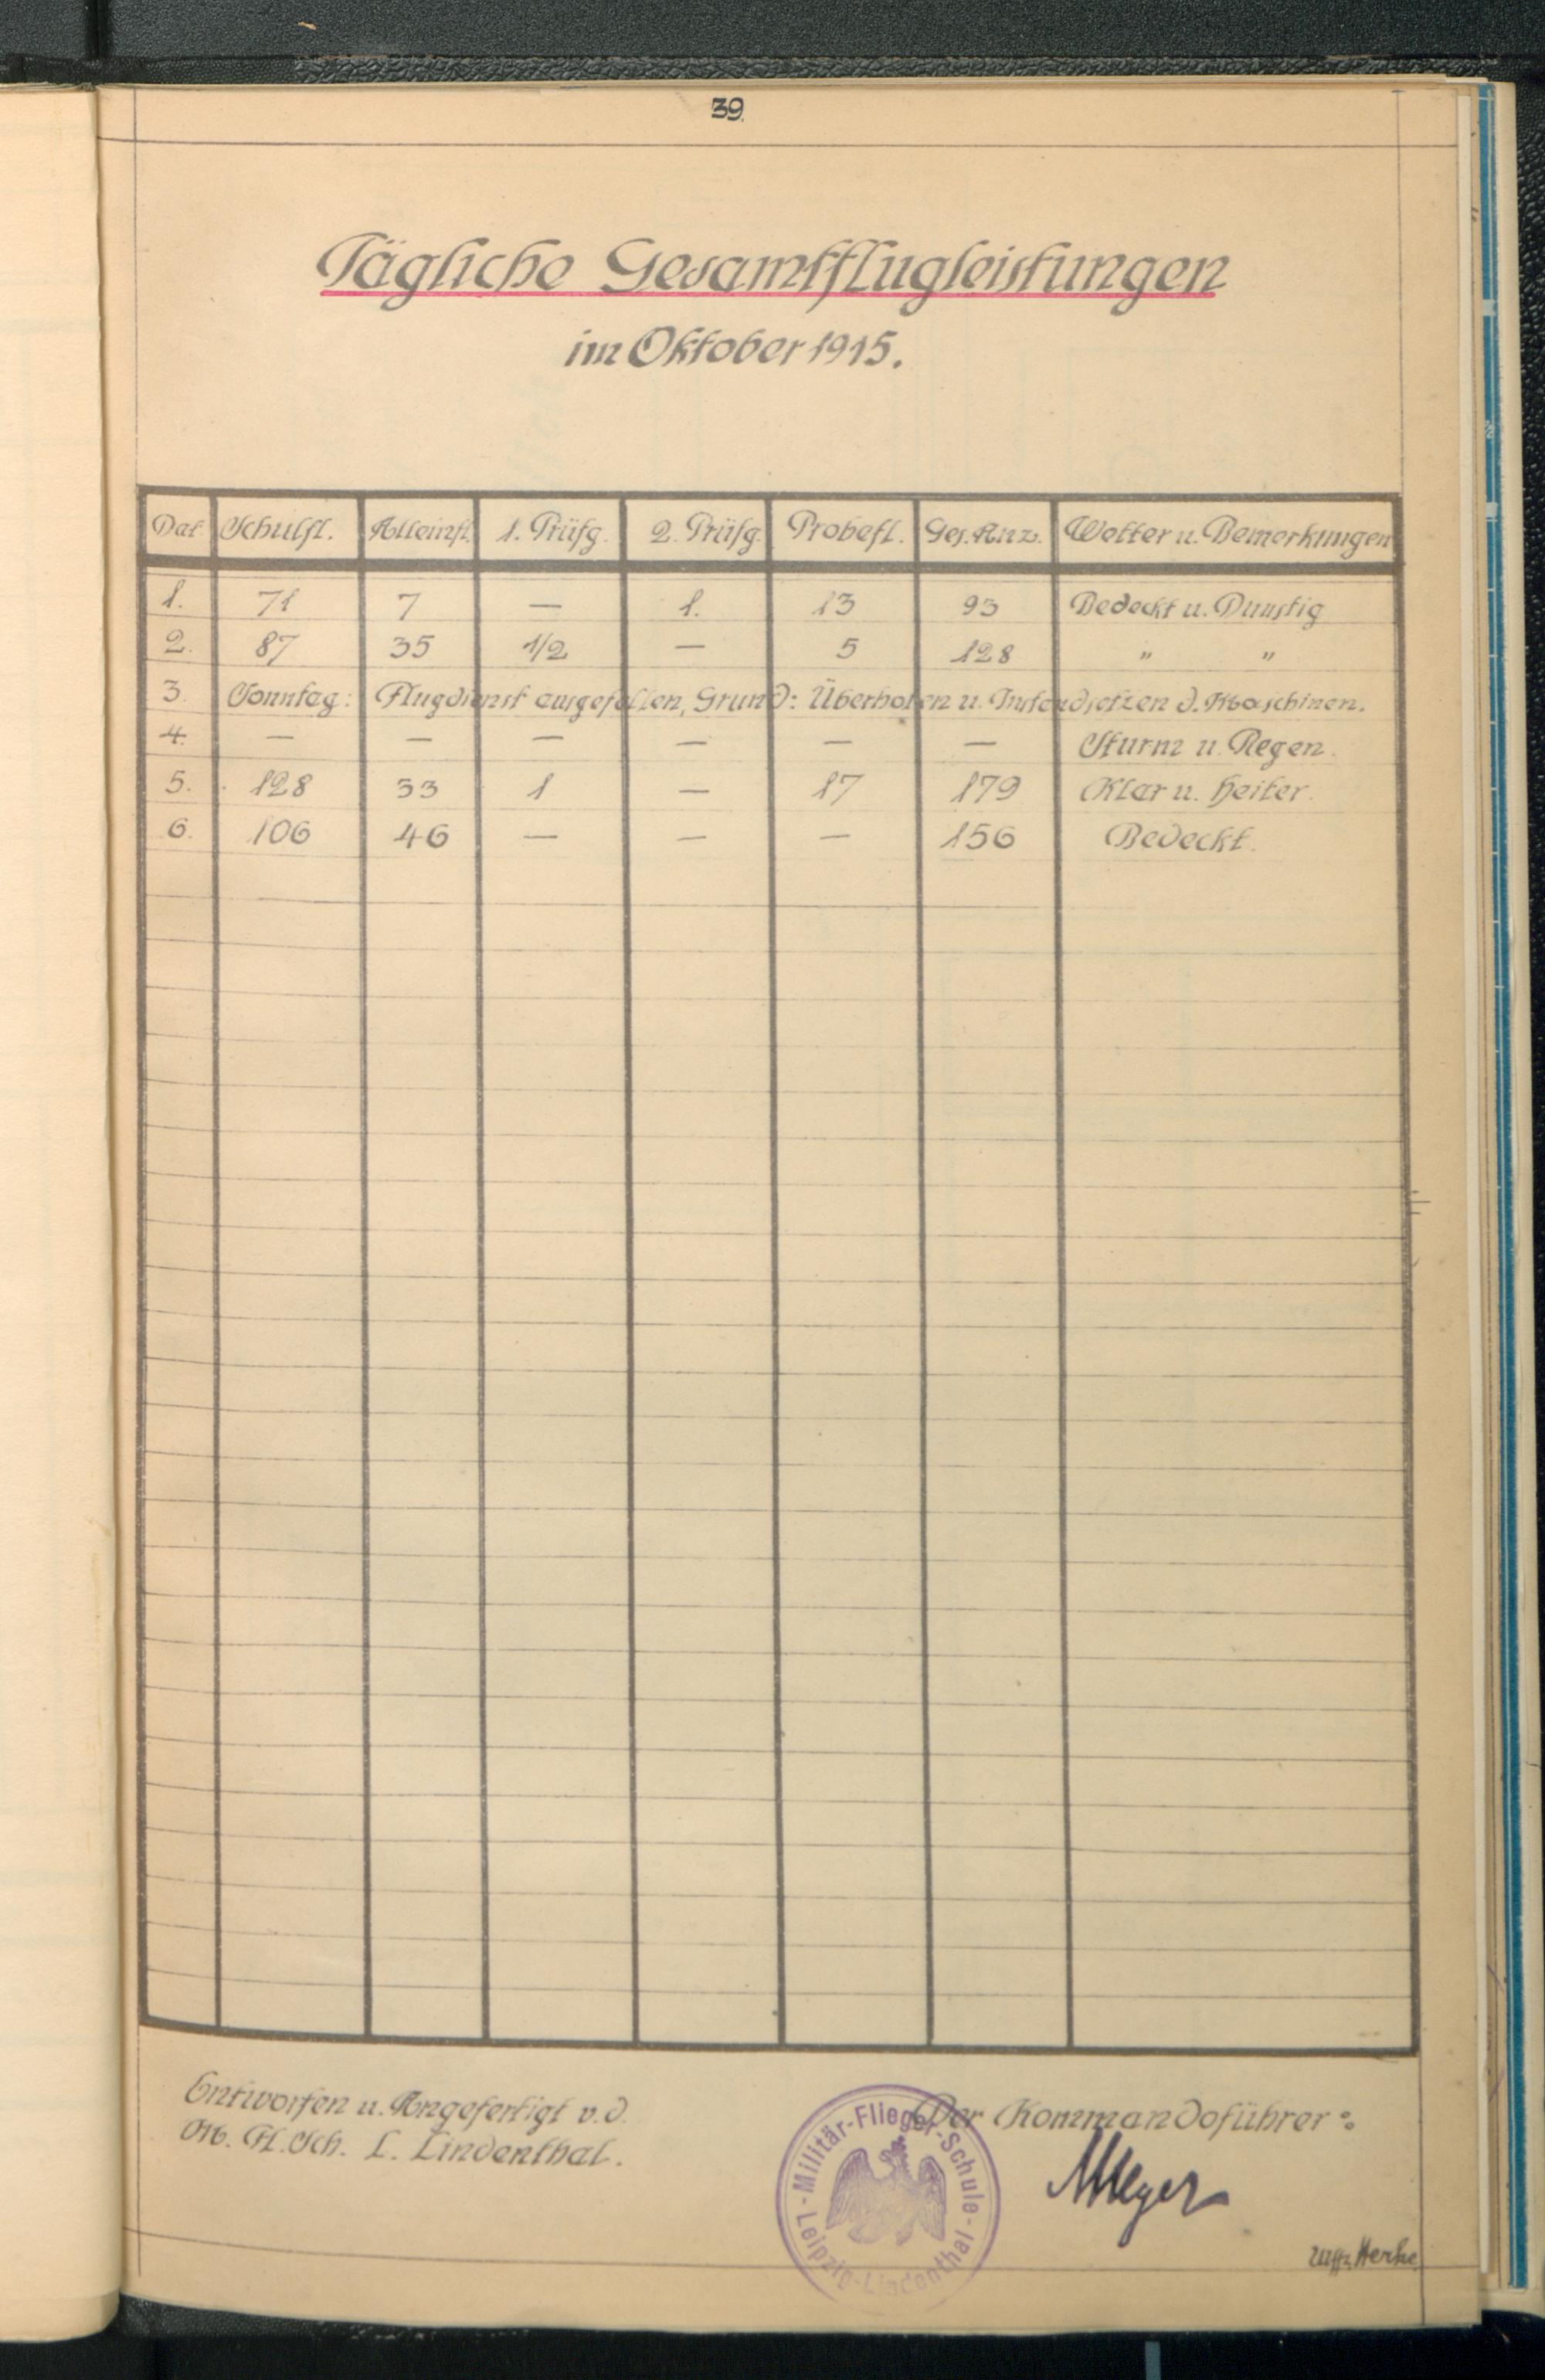 39.
Tägliche Gesamtflugleistungen
im Oktober 1915.
Dat. Schulfl. Alleinfl. 1. Prüfg. 2. Prüfg. Probefl. Ges. Anz. Wetter u. Bemerkungen
1. 71 7 — 1. 13 93 Bedeckt u. Dunstig
2. 87 35 1/2 — 5 128 " "
3. Sonntag: Flugdienst ausgefallen, Grund: Überholen u. Instandsetzen d. Maschinen.
4. — — — — — — Sturm u. Regen.
5. 128 33 1 — 17 179 Klar u. Heiter.
6. 106 46 — — — 156 Bedeckt.
Entworfen u. Angefertigt v. d.
M. Fl. Sch. L. Lindenthal.
Militär-Flieger-Schule
Leipzig-Lindenthal
Der Kommandoführer:
Meyer
Uffz. Herke